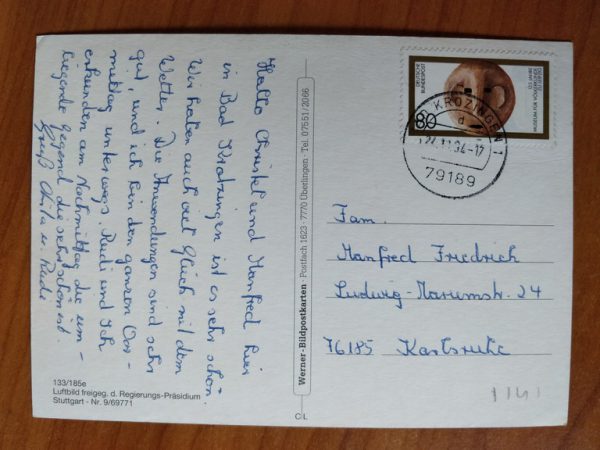 Hallo Christel und Manfred hier
in Bad Krotzingen ist es sehr schön.
Wir haben auch viel Glück mit dem
Wetter. Die Anwendungen sind sehr
gut, und ich bin den ganzen Vor-
mittag unterwegs. Rudi und Ich
erkunden am Nachmittag die um-
liegende Gegend die sehr schön ist.
Gruß u. Rudi
133/185e
Luftbild freigeg. d. Regierungs-Präsidium
Stuttgart - Nr. 9/69771
Werner-Bildpostkarten · Postfach 1623 · 7770 Überlingen · Tel. 07551/2066
C/L
DEUTSCHE
BUNDESPOST
80
125 JAHRE
MUSEUM FÜR VÖLKERKUNDE
KROZINGEN 1
d
94-17
79189
Fam.
Manfred Friedrich
Ludwig-Marumstr. 24
76185 Karlsruhe